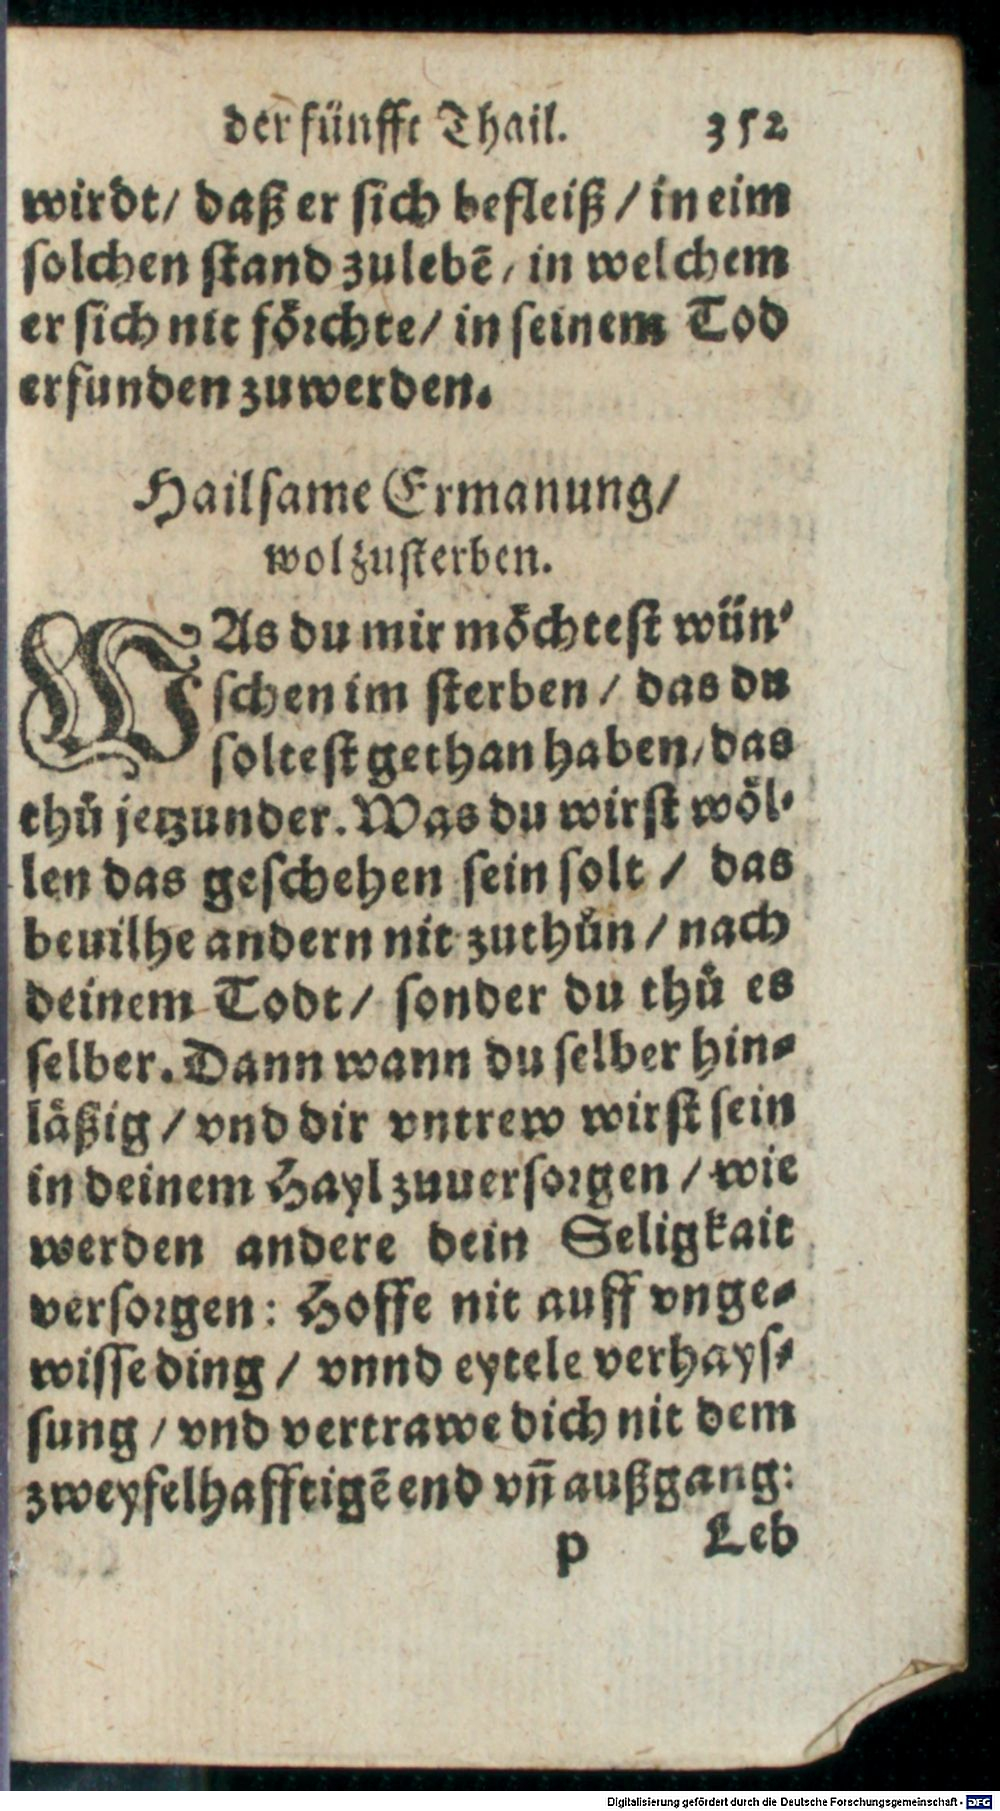 der fünffte Thail. 352
wirdt/ daß er sich befleiß / in eim
solchen stand zulebē / in welchem
er sich nit förchte/ in seinem Tod
erfunden zuwerden.
Hailsame Ermanung/
wol zusterben.
WAs du mir möchtest wün-
schen im sterben / das du
soltest gethan haben/ das
thů jetzunder. Was du wirst wöl-
len das geschehen sein solt / das
beuilhe andern nit zuthůn / nach
deinem Todt/ sonder du thů es
selber. Dann wann du selber hin-
läßig / vnd dir vntrew wirst sein
in deinem Hayl zuuersorgen / wie
werden andere dein Seligkait
versorgen: Hoffe nit auff vnge-
wisse ding / vnnd eytele verhays-
sung / vnd vertrawe dich nit dem
zweyfelhafftigē end vn̄ außgang:
p Leb
Digitalisierung gefördert durch die Deutsche Forschungsgemeinschaft - DFG